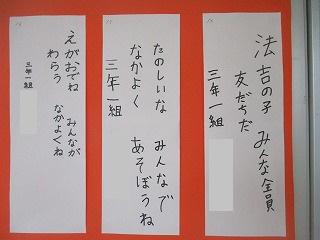 法吉の子 みんな全員
友だちだ
三年一組
たのしいな みんなで
なかよく あそぼうね
三年一組
えがおでね みんなが
わらう なかよくね
三年一組